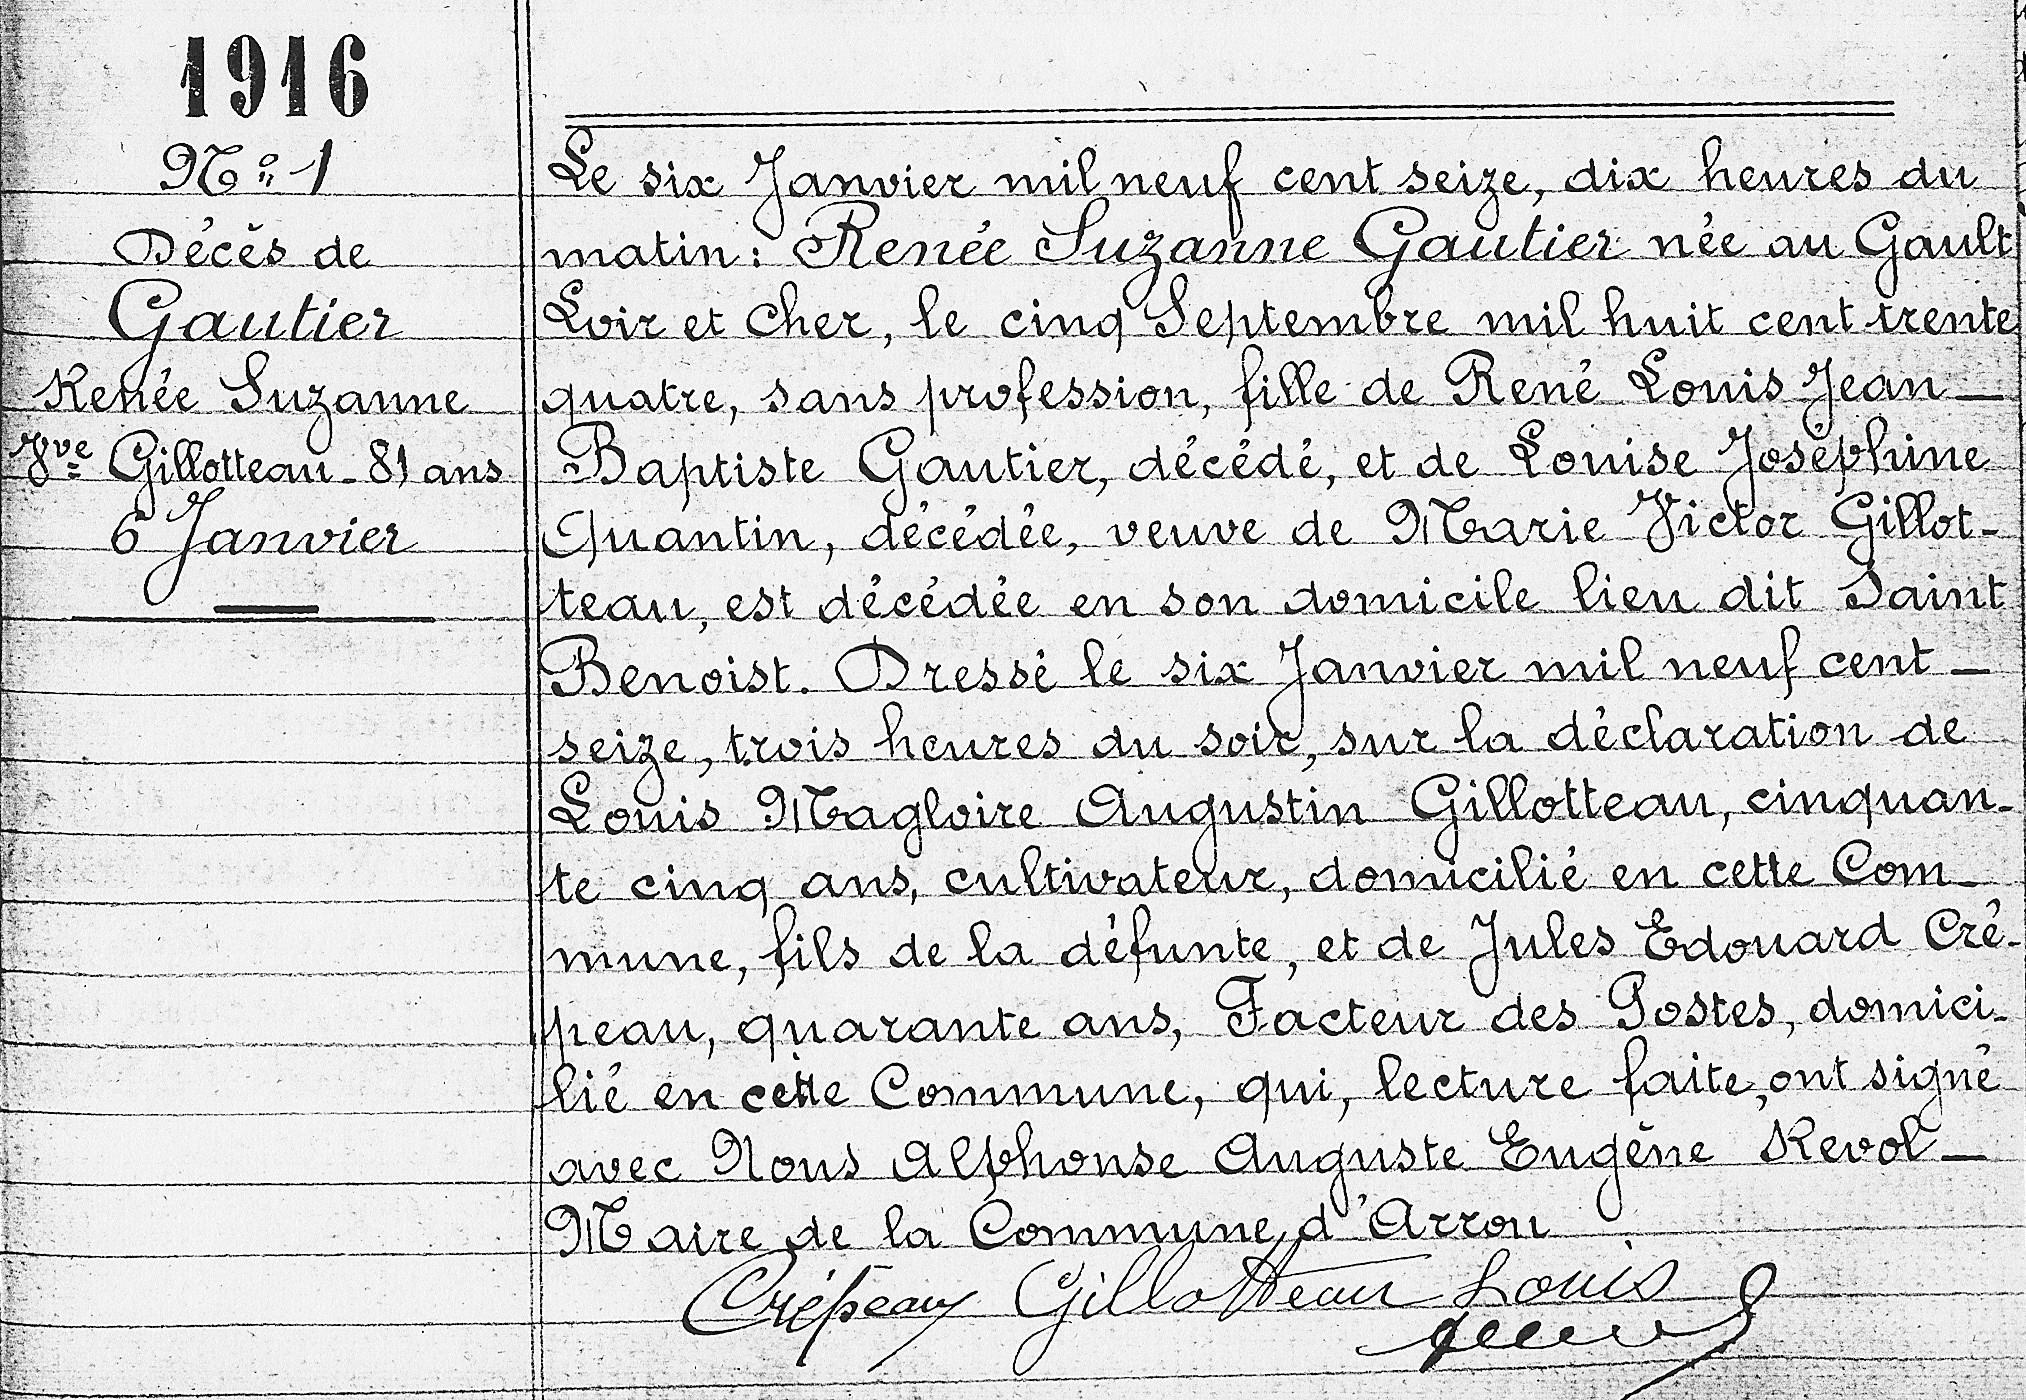 1916
N° 1
Décès de
Gautier
Renée Suzanne
Vve Gillotteau - 81 ans
6 Janvier
Le six Janvier mil neuf cent seize, dix heures du
matin : Renée Suzanne Gautier née au Gault
Loir et Cher, le cinq Septembre mil huit cent trente
quatre, sans profession, fille de René Louis Jean —
Baptiste Gautier, décédé, et de Louise Joséphine
Quantin, décédée, veuve de Marie Victor Gillot-
teau, est décédée en son domicile lieu dit Saint
Benoist. Dressé le six Janvier mil neuf cent —
seize, trois heures du soir, sur la déclaration de
Louis Magloire Augustin Gillotteau, cinquan-
te cinq ans, cultivateur, domicilié en cette Com-
mune, fils de la défunte, et de Jules Edouard Cré-
peau, quarante ans, Facteur des Postes, domici-
lié en cette Commune, qui, lecture faite, ont signé
avec Nous Alphonse Auguste Eugène Revol —
Maire de la Commune d'Arrou
Crépeau Gillotteau Louis